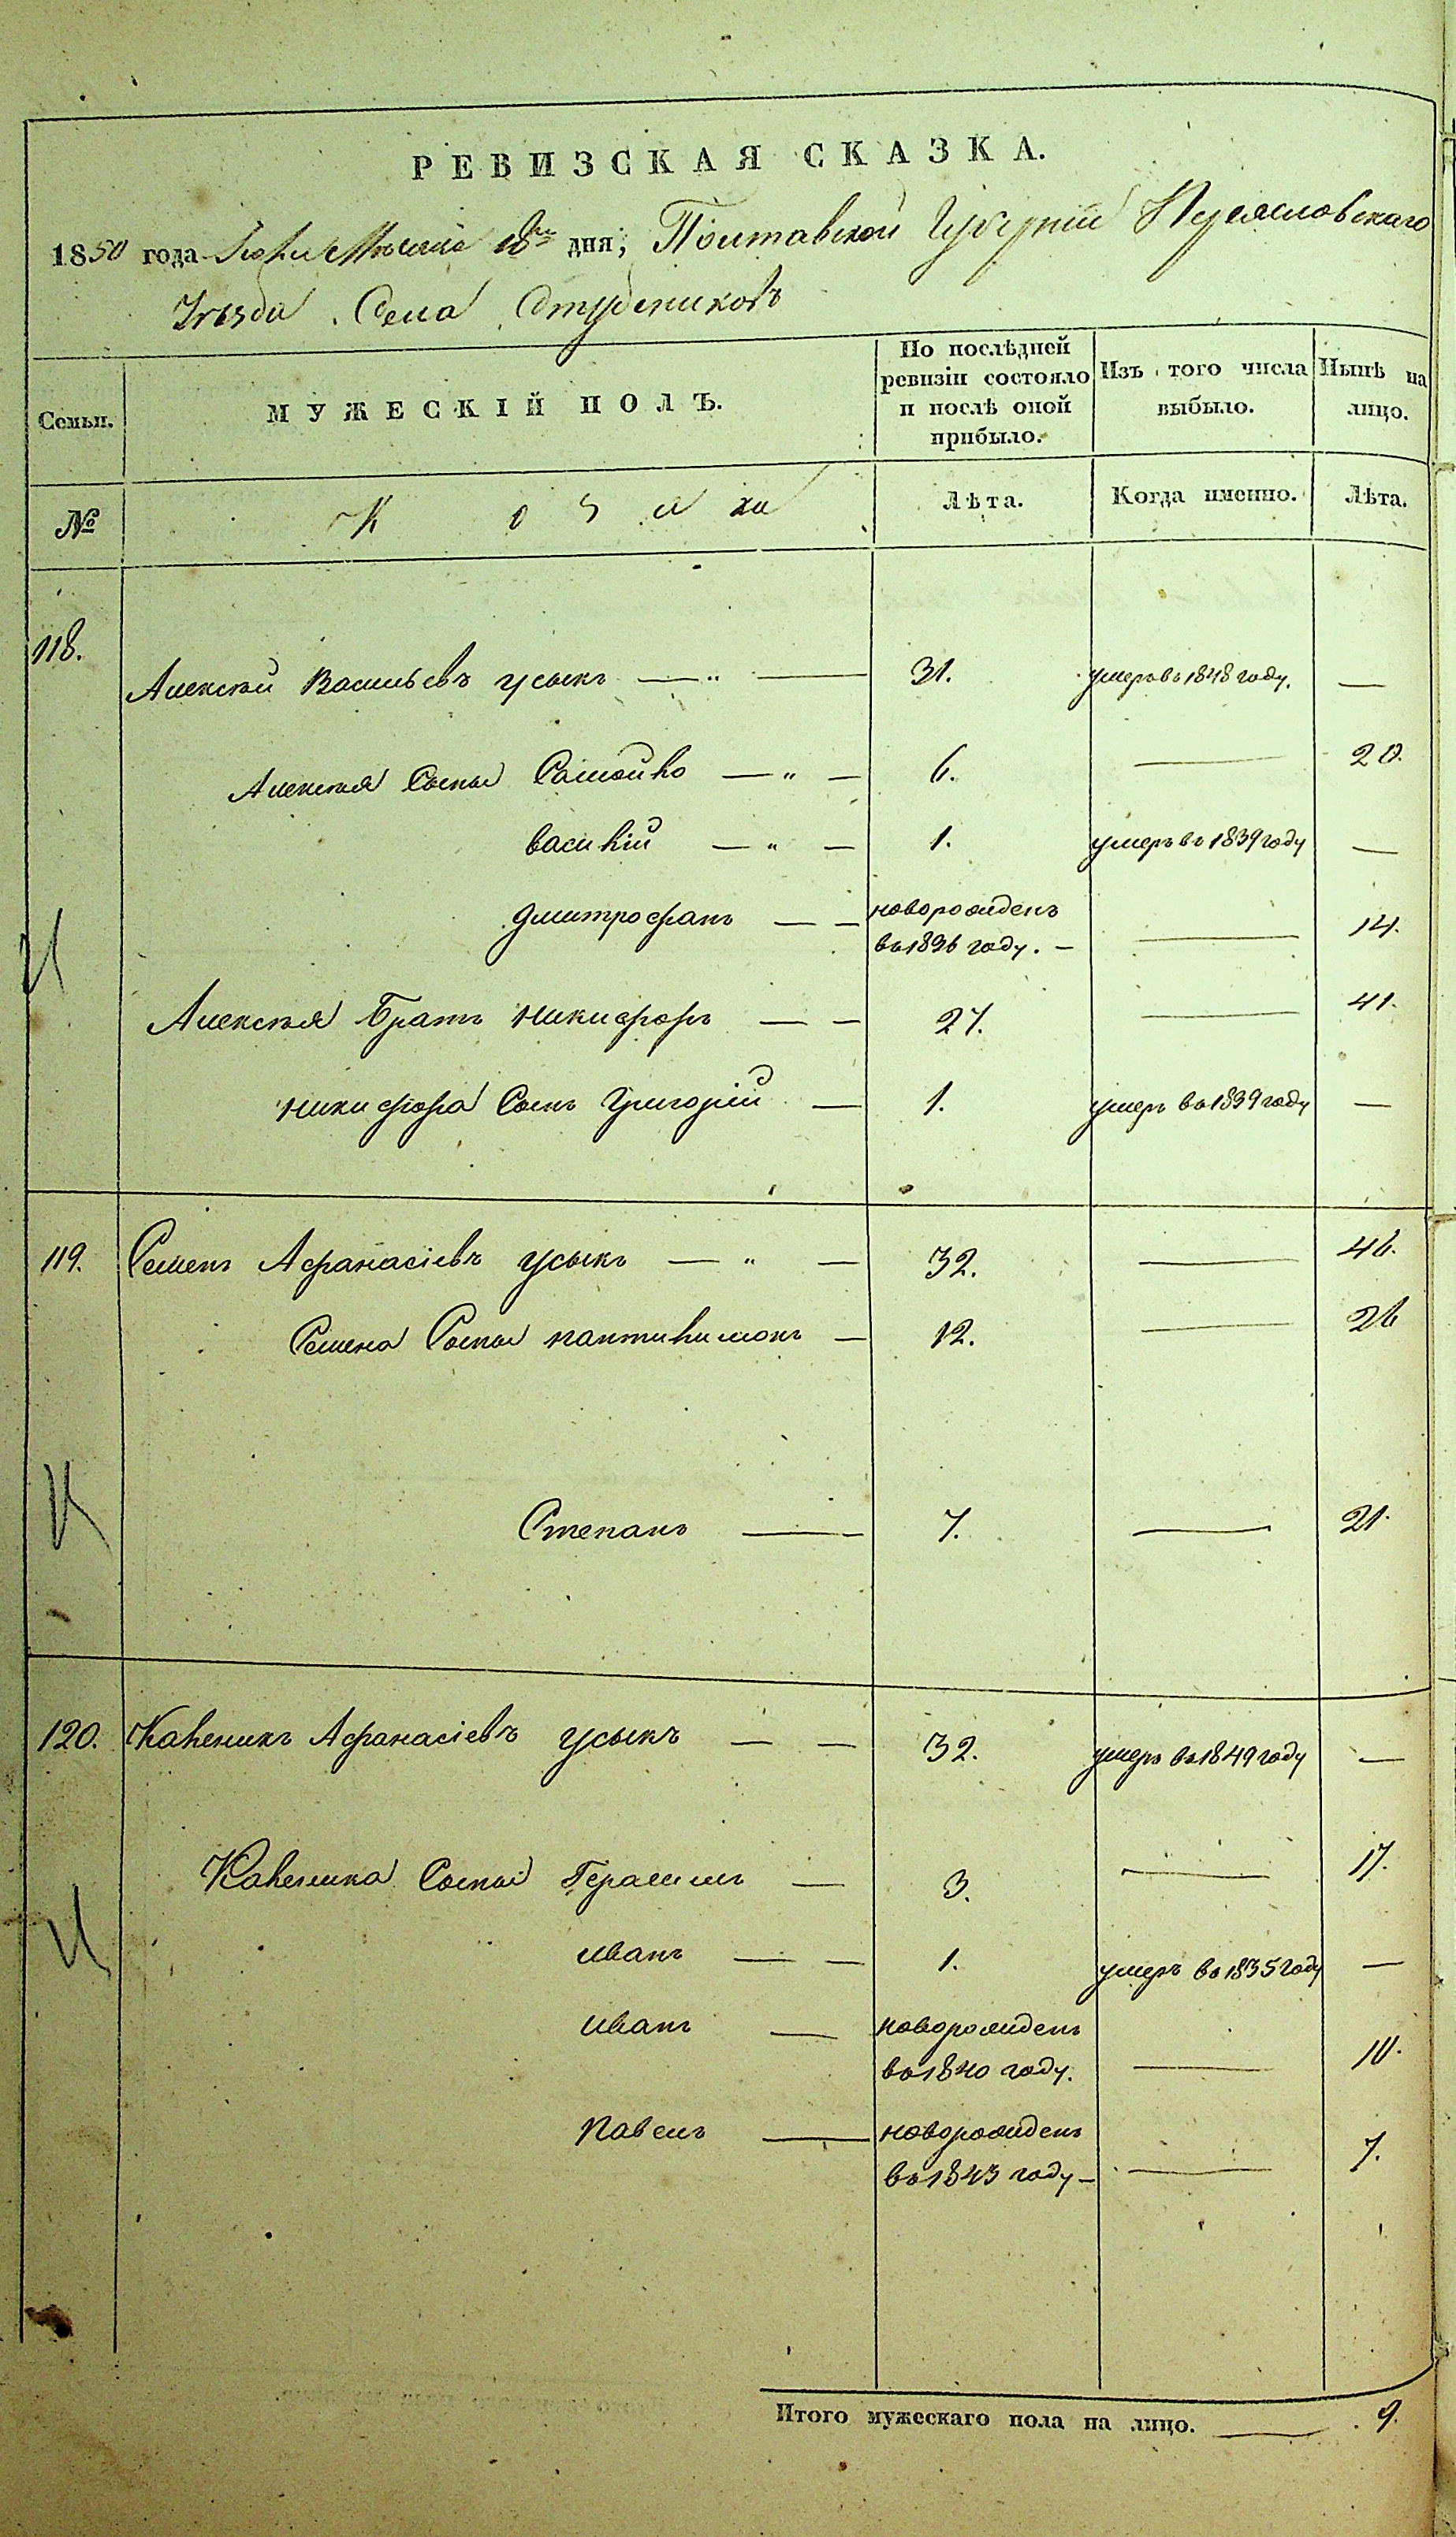 РЕВИЗСКАЯ СКАЗКА.
1850 года Мѣсяца дня, Полтавской Губерніи Переясловскаго
Уѣзда Села Студениковъ
Семьи.
МУЖЕСКІЙ ПОЛЪ.
По послѣдней ревизіи состояло и послѣ оной прибыло.
Изъ того числа выбыло.
Нынѣ на лицо.
№
Козаки
Лѣта.
Когда именно.
Лѣта.
118. Алексѣй Васильевъ Усыкъ — „ — 31. умеръ въ 1848 году. —
Алексѣя Сыны Самойло — „ — 6. — 20.
Василій — „ — 1. умеръ въ 1839 году —
Дмитрофанъ — — новорожденъ — 14.
въ 1836 году. —
Алексѣя Братъ Никифоръ — — 27. — 41.
Никифора Сынъ Григорій — 1. умеръ въ 1839 году —
119. Семенъ Афанасіевъ Усыкъ — „ — 32. — 46.
Семена Сыны Пантилимонъ — 12. — 26
Степанъ — 7. — 21.
120. Каленикъ Афанасіевъ Усыкъ — — 32. умеръ въ 1849 году —
Каленика Сыны Герасимъ — 3. — 17.
Иванъ — — 1. умеръ въ 1835 году —
Иванъ — новорожденъ
въ 1840 году. — 10.
Павелъ — новорожденъ
въ 1843 году — — 7.
Итого мужескаго пола на лицо. — 9.